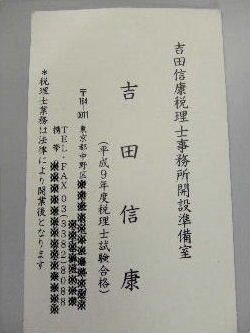 吉田信康税理士事務所開設準備室
吉田信康
(平成9年度税理士試験合格)
〒164-0011
東京都中野区※※※※※※※※※
※※※※※※
TEL・FAX 03(3382)8088
携帯※※※※※※※※※※
＊税理士業務は法律により開業後となります